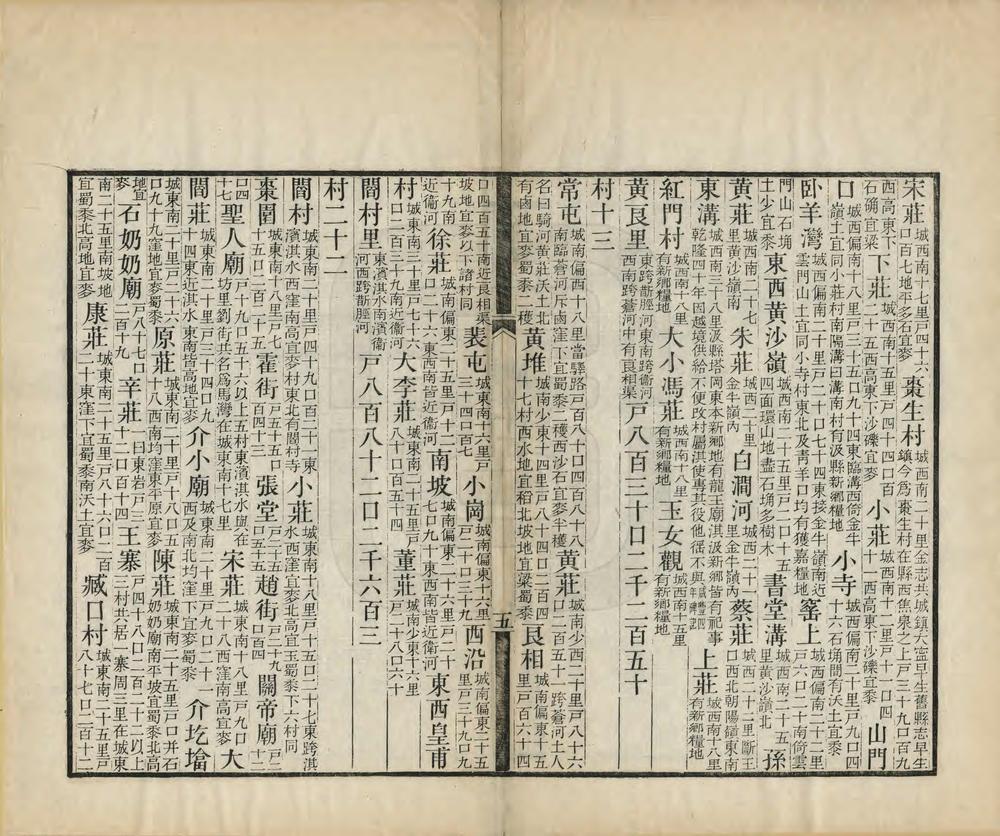 宋莊 城西南十七里戶四十六口百七地平多石宜麥 棗生村 城西南二十里金志共城鎮大寍早生舊縣志早生鎮今為棗生村在縣西焦泉之上戶三十九口百九
西高東下石确宜粱 下莊 城西南十五里戶四十口百二十五西高東下沙礫宜麥 小莊 城西南十二里戶十一口四十一西高東下沙礫宜黍 山門
口 城西偏南十八里戶三十五口九十四東臨溝西倚金牛嶺土宜同小莊村南陽溝曰溝南村有汲縣新鄉糧地 小寺 城西偏南二十里戶九口四十六石塉間有沃土宜黍
臥羊灣 城西偏南二十里戶二十口七十四東接金牛嶺南近雲門山土宜同小寺村東北及青羊口均有獲嘉糧地 窰上 城西偏南二十二里戶六口二十南倚雲
門山石塉土少宜黍 東西黃沙嶺 城西南二十五里戶二口十五四面環山地盡石塉多樹木 書堂溝 城西南二十五里黃沙嶺北 孫
黃莊 城西南二十七里黃沙嶺南 朱莊 城西二十里金牛嶺內 白澗河 城西二十一里金牛嶺內 蔡莊 城西二十二里斷王口西北朝陽嶺東南
東溝 城西南三十八里汲縣塔岡東本新鄉地有龍王廟淇汲新鄉皆有祀事乾隆四十年因越境供給不便改村屬淇使專其役他徭不與咸豐四年碑記 上莊 城西南十八里有新鄉糧地
紅門村 城西南十八里有新鄉糧地 大小馮莊 城西南十八里有新鄉糧地 玉女觀 城西南十五里有新鄉糧地
黃良里 東跨斮脛河東南跨衞河西南跨蒼河中有良相渠 戶八百三十口二千二百五十
村十三
常屯 城南偏西十八里當驛路戶百八十四口四百八十八南臨蒼河斥鹵窪下宜蜀黍二穫西沙石宜麥半穫 黃莊 城南少西二十里戶八十六口二百五十一跨蒼河土人
名曰騎河黃莊沃土北有鹵地宜麥蜀黍二穫 黃堆 城南少東十四里戶八十四口二百四十七村西水地宜稻北坡地宜粱蜀黍 良相 城南偏東十五里戶百六十四
五
口四百五十南近良相渠坡地宜麥以下諸村同 裴屯 城東南十六里戶三十四口百七 小崗 城南偏東十六里戶二十口二十九 西沿 城南偏東二十五里戶三十九口九
十九南近衞河 徐莊 城南偏東二十五里戶十二口二十六東西南皆近衞河 南坡 城南偏東二十六里戶二十七口九十東西南皆近衞河 東西皇甫
村 城東南三十里戶七十六口二百三十九南近衞河 大李莊 城東南二十五里戶八十口百五十四 董莊 城南少東十六里戶二十八口六十
閻村里 東濱淇水南濱衞河西跨斮脛河 戶八百八十二口二千六百三
村二十二
閻村 城東南二十里戶四十九口百二十一東濱淇水西窪南高宜麥村東北有關村寺 小莊 城東南十八里戶十五口二十七東跨淇水西窪宜麥北高宜玉蜀黍下六村同
棗園 城東南十八里戶二十五口二百二十五 霍街 戶五十五口百四十三 張堂 戶二十四口五十五 趙街 戶二十九口百四 關帝廟 戶二十二
口四十七 聖人廟 戶十九口五十六以上五村東濱淇水與在坊里劉街共名為馬灣在城東南十七里 宋莊 城東南十八里戶九口二十八西窪南高宜麥 大
閻莊 城東南二十里戶三十四口九十四東近淇水東南皆高地宜麥 介小廟 城東南二十里戶九口二十一西及南北均窪下宜麥蜀黍 介圪壋
城東南二十里戶二十六口九十九窪地宜麥蜀黍 原莊 城東南二十里戶十八口五十八西南均窪東平原宜麥 陳莊 城東南二十五里戶口并石奶奶廟南平坡宜蜀黍北高
地宜麥 石奶奶廟 戶八十七口二百十九 辛莊 一曰東岩戶三十二口百十四 王寨 戶四十八口二百二十二以上三村共居一寨周三里在城東
南二十五里南坡地宜蜀黍北高地宜麥 康莊 城東南二十五里戶六十六口二百二十東窪下宜蜀黍南沃土宜麥 臧口村 城東南二十五里戶八十七口二百十二